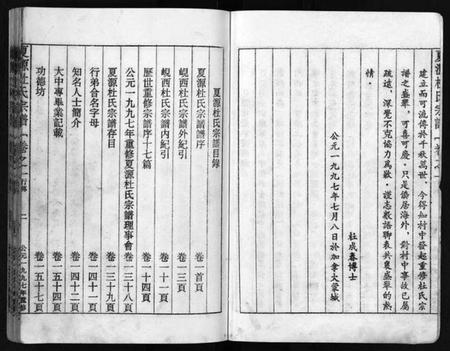 夏源杜氏宗譜 卷之一
建立而可流傳於千秋萬世、今得知村中發起重修杜氏宗
譜之盛舉、可喜可慶、只是僑居海外、對村中事故已屬
疏遠、深覺不克協力為歉、謹志數語聊表共襄盛舉的熱
情。
杜成春博士
公元一九九七年七月八日於加拿大蒙城
夏源杜氏宗譜目錄
夏源杜氏宗譜譜序 卷一首頁
峴西杜氏宗譜外紀引 卷一三頁
峴西杜氏宗譜內紀引 卷一十一頁
歷世重修宗譜序十七篇 卷一十四頁
公元一九九七年重修夏源杜氏宗譜理事會 卷一三十八頁
夏源杜氏宗譜存目 卷一三十九頁
行弟合名字母 卷一四十一頁
知名人士簡介 卷一四十二頁
大中專畢業記載 卷一五十四頁
功德坊 卷一五十七頁
夏源杜氏宗譜 卷之一 二 公元一九九七年重修